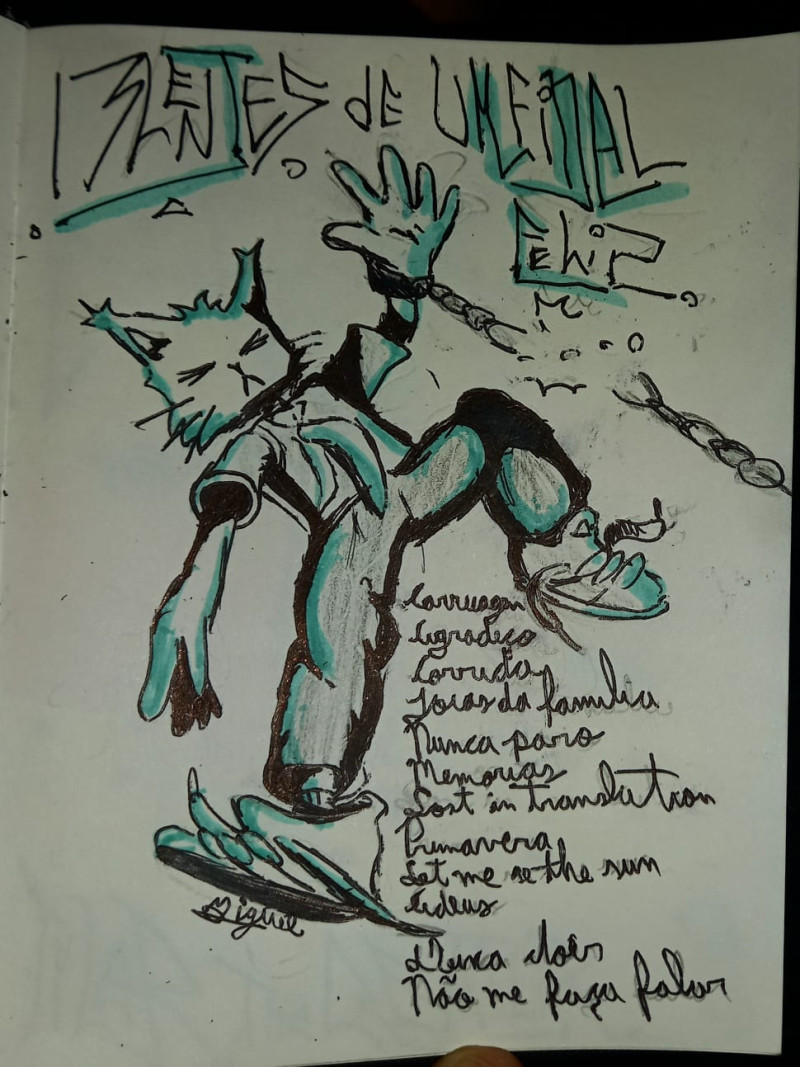 LENTES de UM FiNAL
Carruagem
Agradeço
Corrida
Joias da familia
Nunca paro
Memorias
Lost in translation
Primavera
Let me se the sun
Adeus
Nunca
Não me faça falar
Miguel